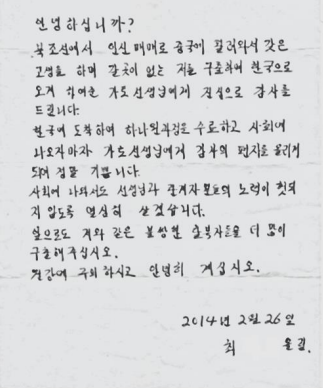 안녕하십니까?
북조선에서 인신매매로 중국에 팔려와서 갖은
고생을 하며 갈곳이 없는 저를 구출하여 한국으로
오게 하여준 가토선생님에게 진심으로 감사를
드립니다.
한국에 도착하여 하나원과정을 수료하고 사회에
나오자마자 가토선생님에게 감사의 편지를 올리게
되여 정말 기쁩니다.
사회에 나와서도 선생님과 후원자분들의 노력이 헛되
지 않도록 열심히 살겠습니다.
앞으로도 저와 같은 불쌍한 탈북자들을 더 많이
구출해주십시오.
건강에 주의하시고 안녕히 계십시오.
2014년 2월 26일
최